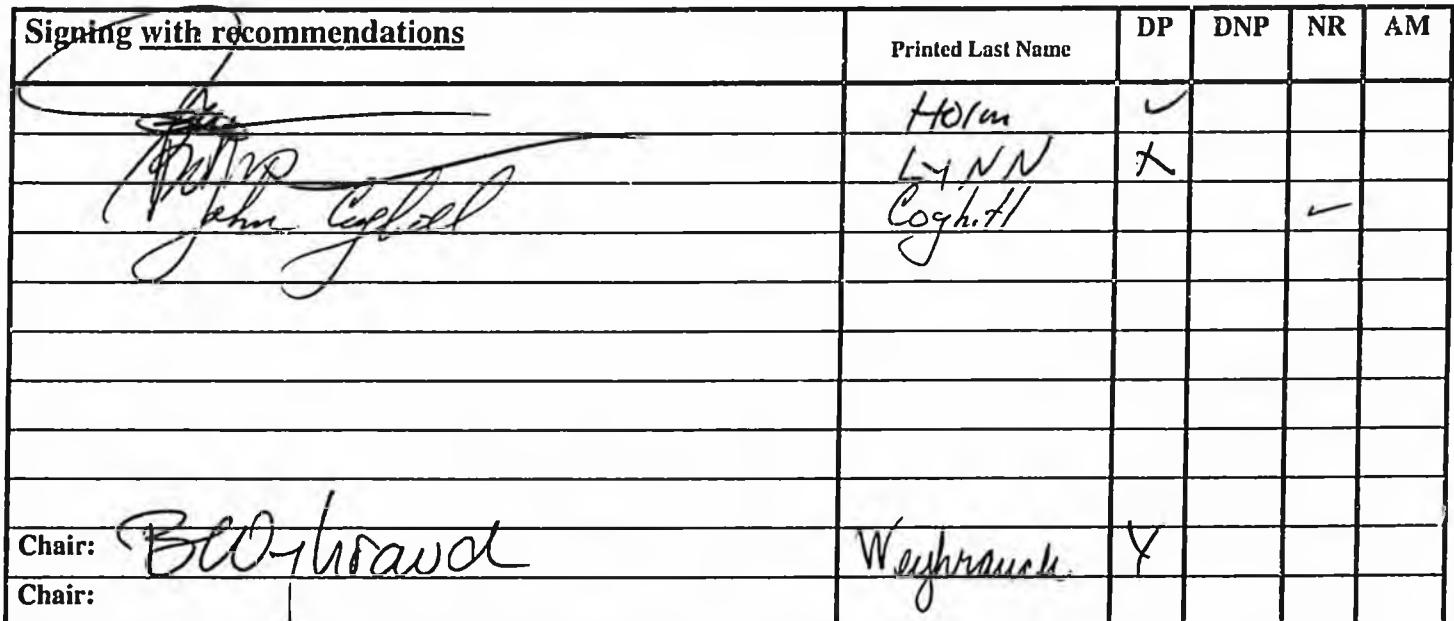 Signing with recommendations Printed Last Name DP DNP NR AM
Holm ✓
LyNN X
John Coghill Coghill ✓
Chair: Weyhrauch X
Chair: